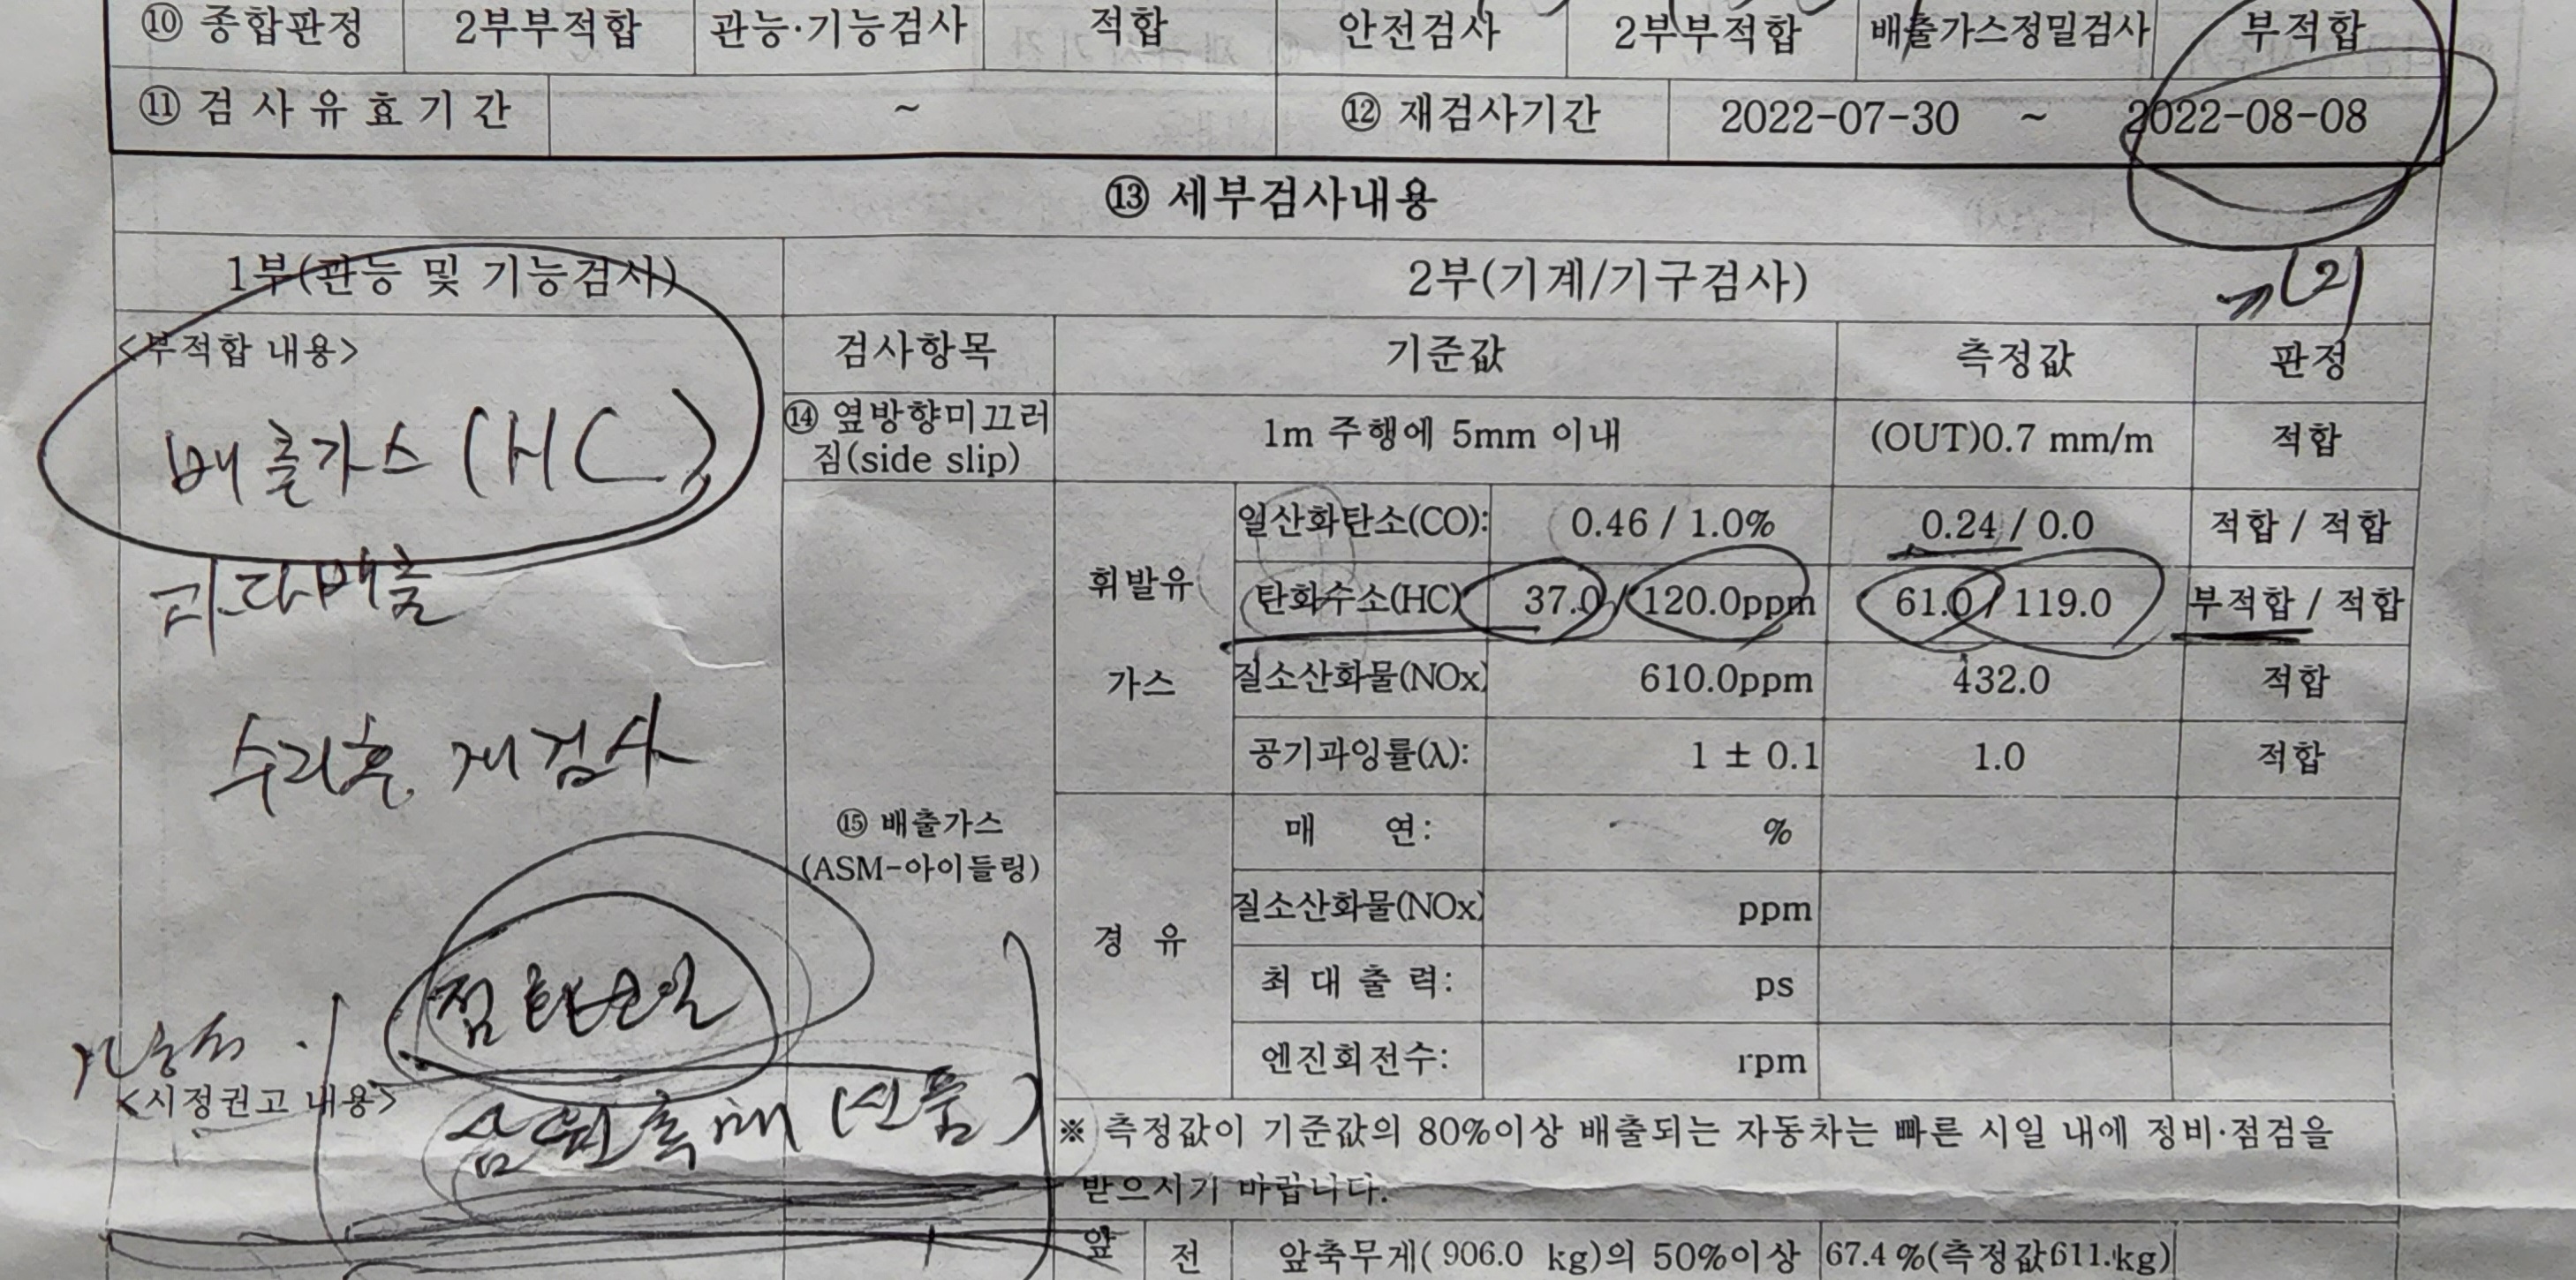 ⑩ 종합판정 2부부적합 관능·기능검사 적합 안전검사 2부부적합 배출가스정밀검사 부적합
⑪ 검 사 유 효 기 간 ~ ⑫ 재검사기간 2022-07-30 ~ 2022-08-08
⑬ 세부검사내용
1부(관능 및 기능검사)
<부적합 내용>
배출가스 (HC)
과다배출
수리후 재검사
점화코일
가능성.
<시정권고 내용>
삼원촉매 (신품)
2부(기계/기구검사)
(2)
검사항목 기준값 측정값 판정
⑭ 옆방향미끄러
짐(side slip) 1m 주행에 5mm 이내 (OUT)0.7 mm/m 적합
⑮ 배출가스
(ASM-아이들링)
휘발유
가스
일산화탄소(CO): 0.46 / 1.0% 0.24 / 0.0 적합 / 적합
탄화수소(HC) 37.0 / 120.0ppm 61.0 / 119.0 부적합 / 적합
질소산화물(NOx) 610.0ppm 432.0 적합
공기과잉률(λ): 1 ± 0.1 1.0 적합
경 유
매 연: %
질소산화물(NOx) ppm
최 대 출 력: ps
엔진회전수: rpm
※ 측정값이 기준값의 80%이상 배출되는 자동차는 빠른 시일 내에 정비·점검을
받으시기 바랍니다.
앞 전 앞축무게( 906.0 kg)의 50%이상 67.4 %(측정값611.kg)